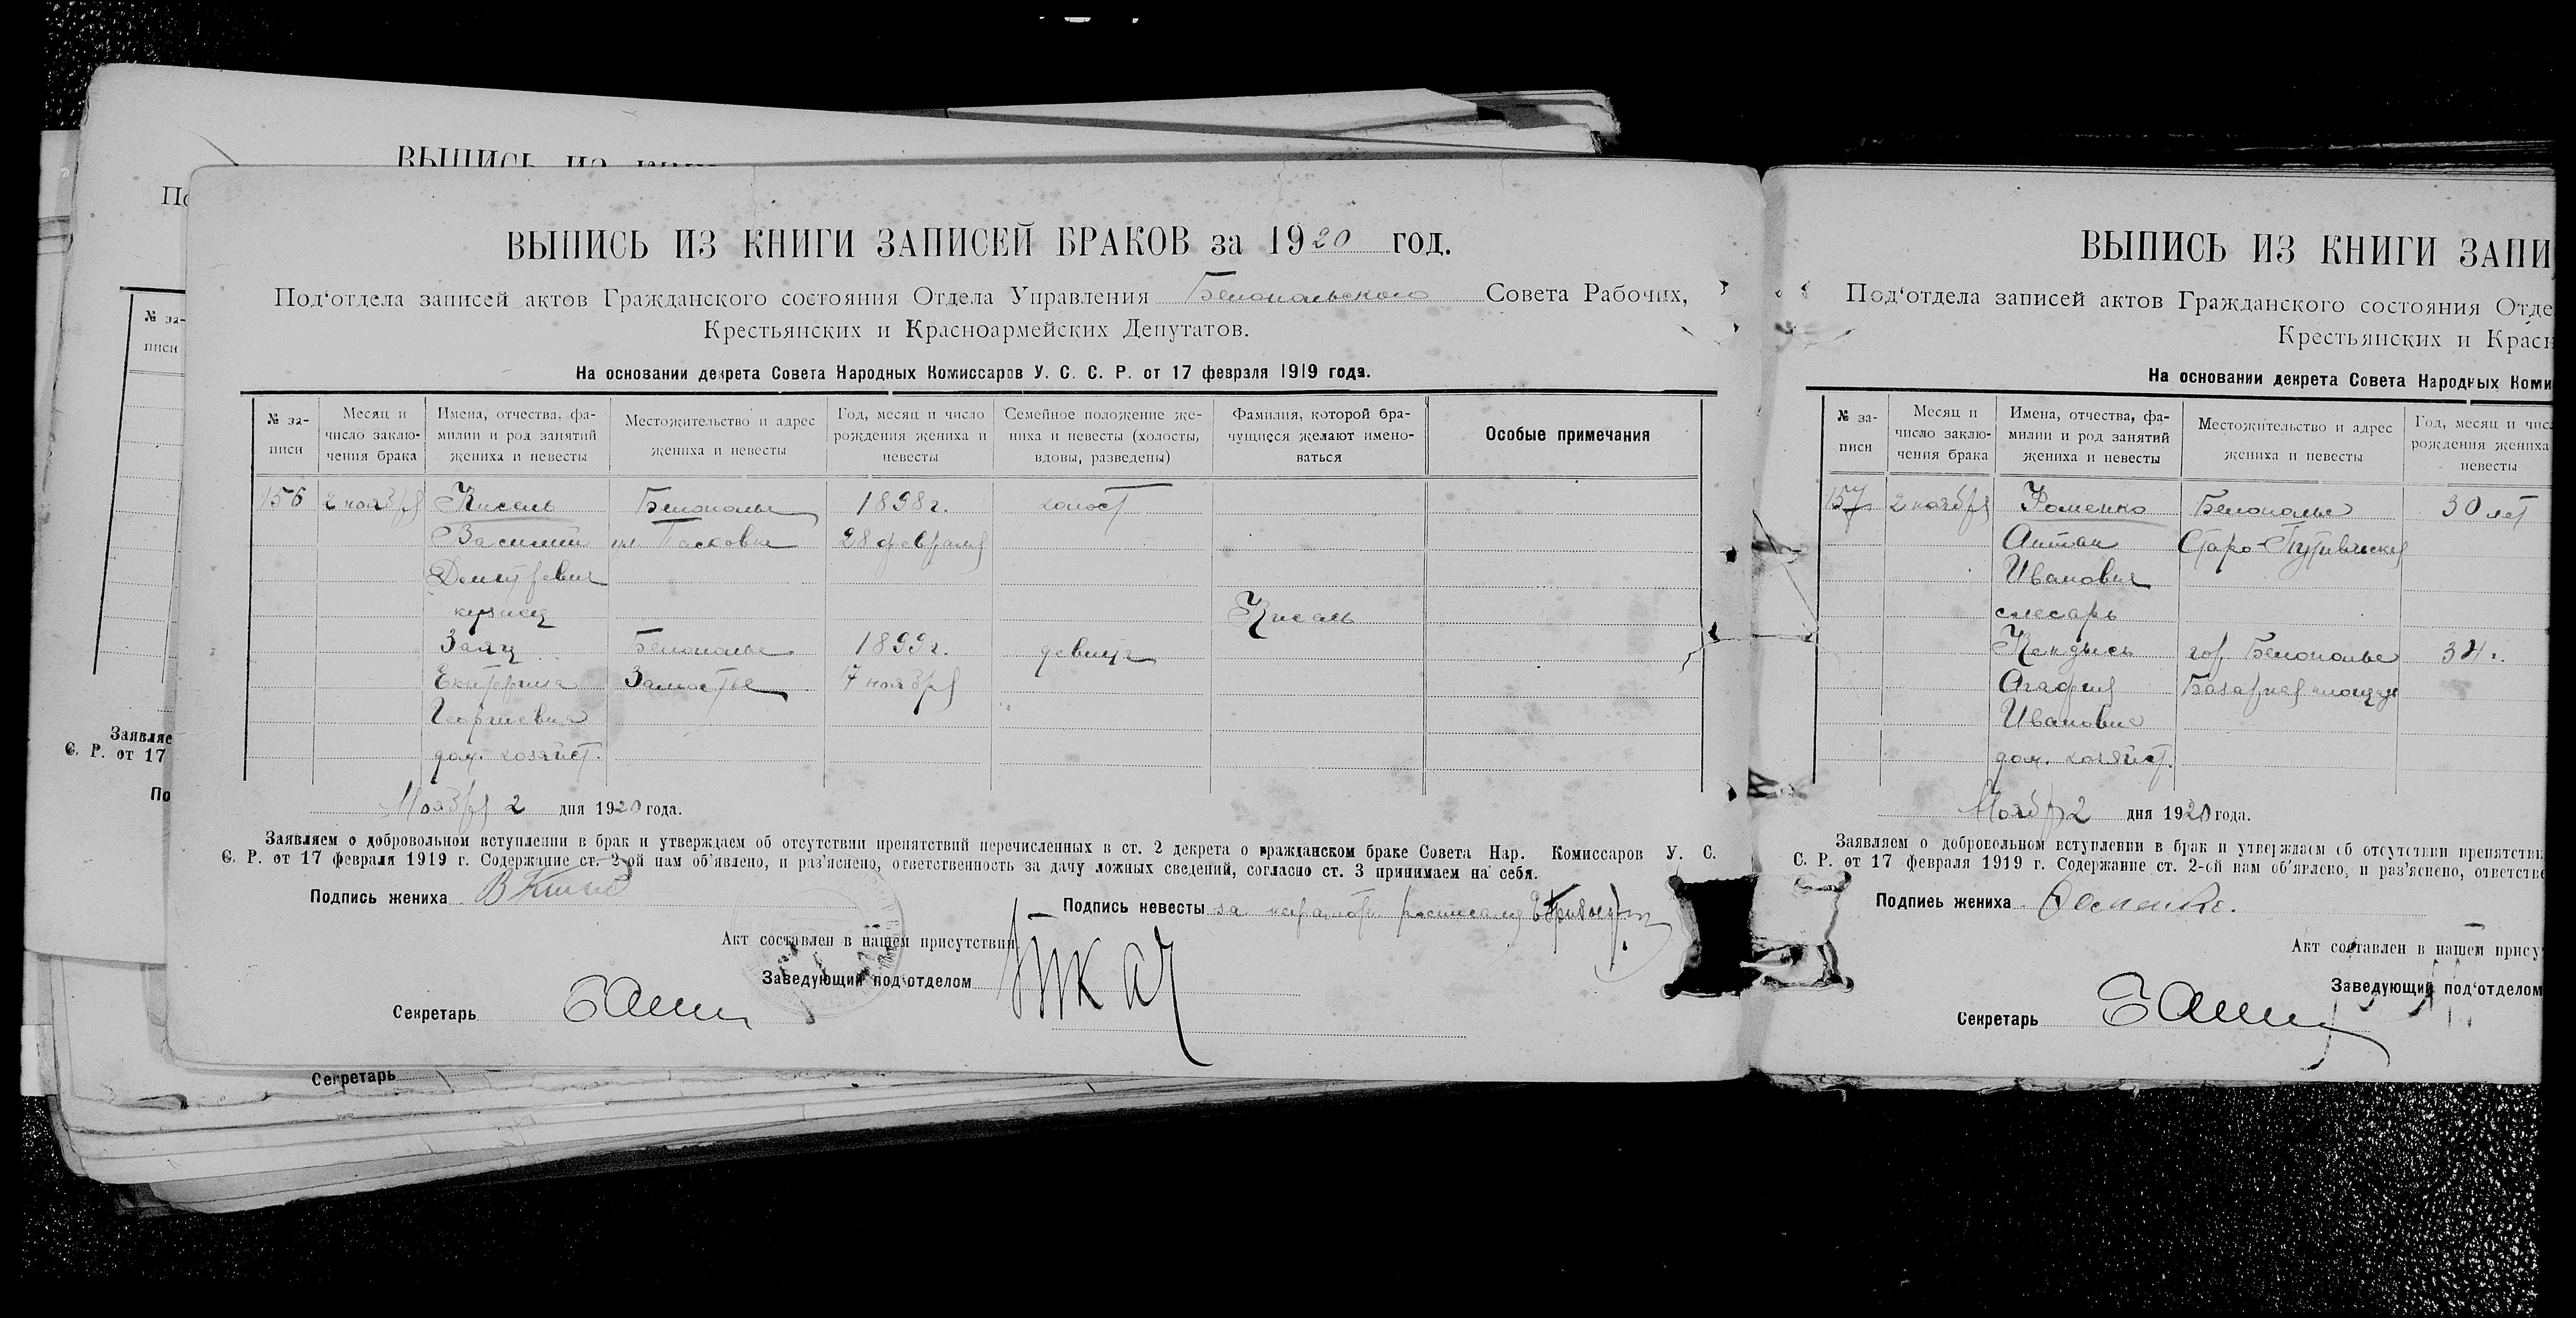 ВЫПИСЬ ИЗ КНИГИ ЗАПИСЕЙ БРАКОВ за 1920 год.
Под‘отдела записей актов Гражданского состояния Отдела Управления Белопольского Совета Рабочих,
Крестьянских и Красноармейских Депутатов.
На основании декрета Совета Народных Комиссаров У. С. С. Р. от 17 февраля 1919 года.
№ за-
писи
Месяц и
число заклю-
чения брака
Имена, отчества, фа-
милии и род занятий
жениха и невесты
Местожительство и адрес
жениха и невесты
Год, месяц и число
рождения жениха и
невесты
Семейное положение же-
ниха и невесты (холосты,
вдовы, разведены)
Фамилия, которой бра-
чущиеся желают имено-
ваться
Особые примечания
156 2 ноября Кисель Белополье 1898г. холост
Василий ул. Пасковка 28 февраля
Дмитревич
кузнец Кисель
Заяц Белополье 1899г. девица
Екатерина Замостье 17 ноября
Георгиевна
дом. хозяйст.
Ноября 2 дня 1920 года.
Заявляем о добровольном вступлении в брак и утверждаем об отсутствии препятствий перечисленных в ст. 2 декрета о гражданском браке Совета Нар. Комиссаров У. С.
С. Р. от 17 февраля 1919 г. Содержание ст. 2-ой нам об'явлено, и раз'яснено, ответственность за дачу ложных сведений, согласно ст. 3 принимаем на себя.
Подпись жениха В Кисель
Подпись невесты за неграмотн расписался
Акт составлен в нашем присутствии
Заведующий под‘отделом Ткач
Секретарь
Секретарь
ВЫПИСЬ ИЗ КНИГИ ЗАПИ
Под‘отдела записей актов Гражданского состояния Отде
Крестьянских и Красн
На основании декрета Совета Народных Коми
№ за-
писи
Месяц и
число заклю-
чения брака
Имена, отчества, фа-
милии и род занятий
жениха и невесты
Местожительство и адрес
жениха и невесты
Год, месяц и чис
рождения жениха
невесты
157 2 ноября Фоменко Белополье 30 лет
Антон Старо-Путивльская
Иванович
слесарь
Кендысь гор Белополье 34 г.
Агафия Базарная площадь
Ивановна
дом. хозяйст.
Ноябр 2 дня 1920 года.
Заявляем о добровольном вступлении в брак и утверждаем об отсутствии препятстви
С. Р. от 17 февраля 1919 г. Содержание ст. 2-ой нам об'явлено, и раз'яснено, ответстве
Подпись жениха Фоменко.
Акт составлен в нашем прису
Заведующий под‘отделом
Секретарь
ВЫПИСЬ ИЗ
По
№ за-
писи
Заявляе
С. Р. от 17
По